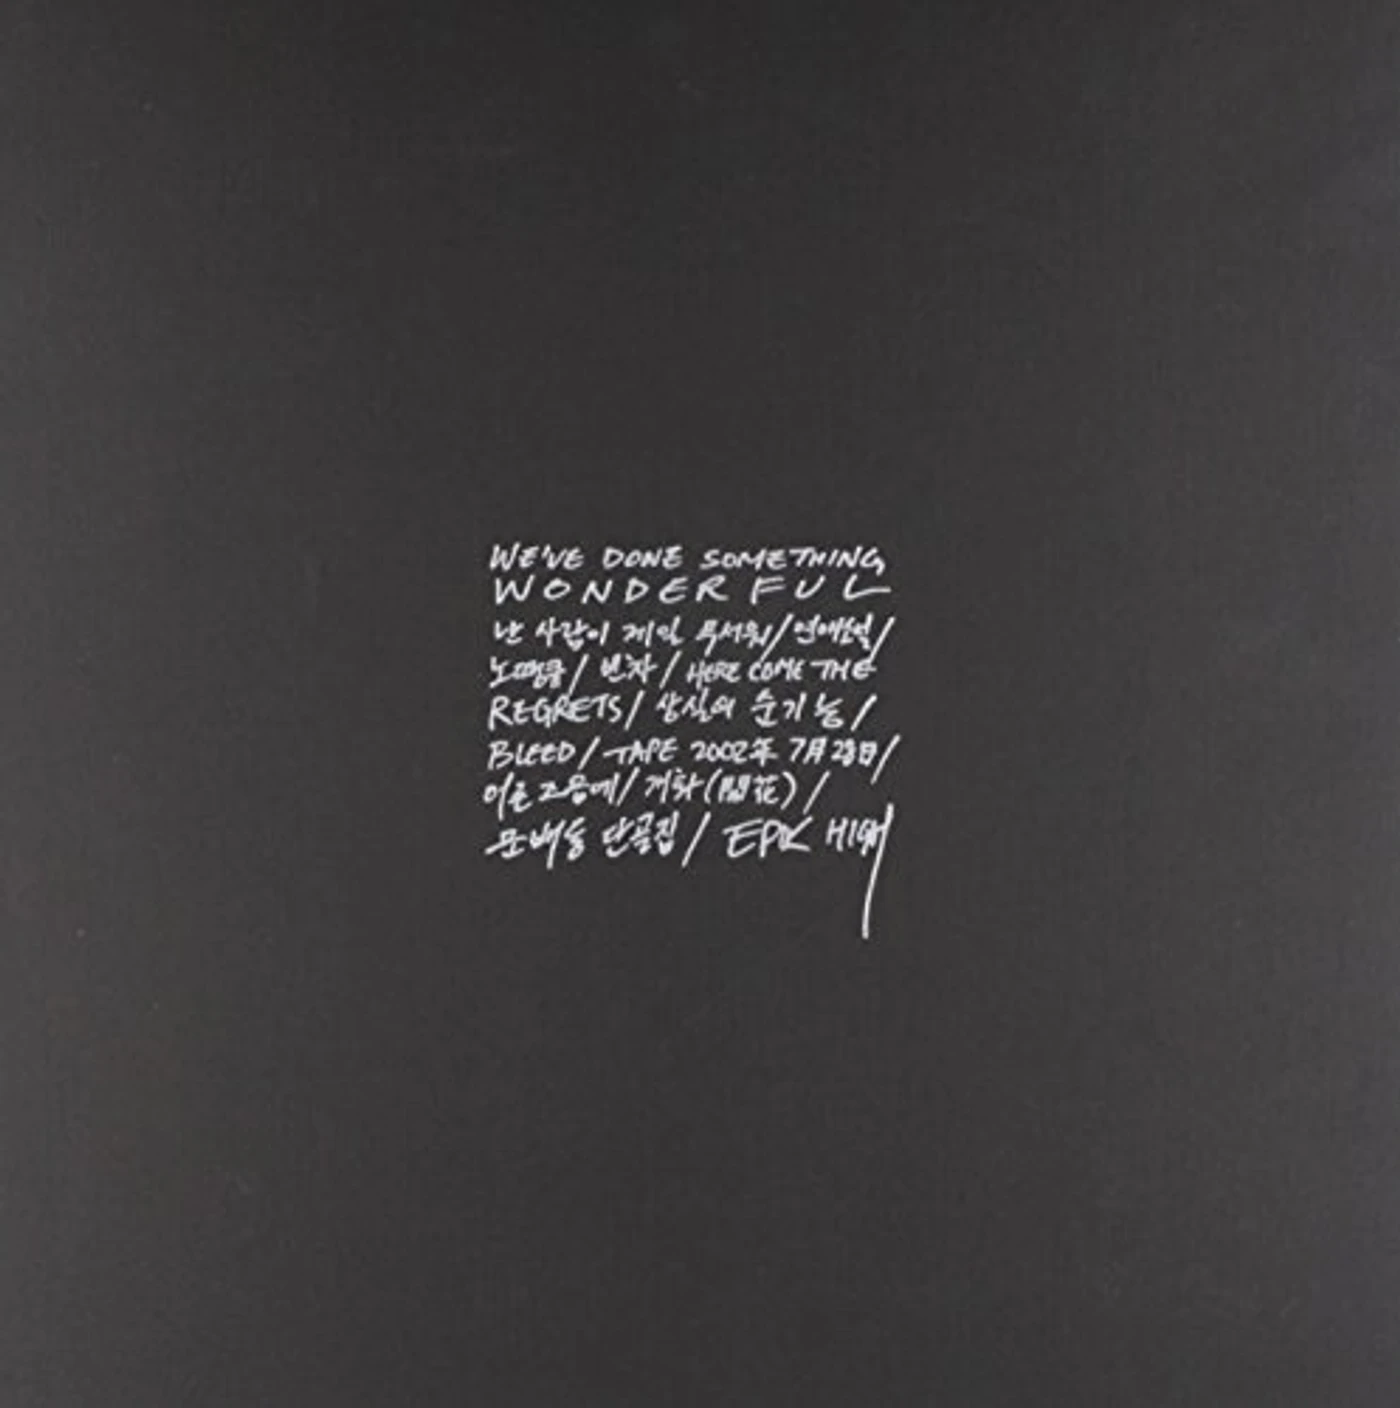 WE'VE DONE SOMETHING
WONDERFUL
난 사람이 제일 무서워/연애소설/
노땡큐/빈차/HERE COME THE
REGRETS/상실의 순기능/
BLEED/TAPE 2002年 7月28日/
어른 즈음에/개화(開花)/
문배동 단골집/EPIK HIGH